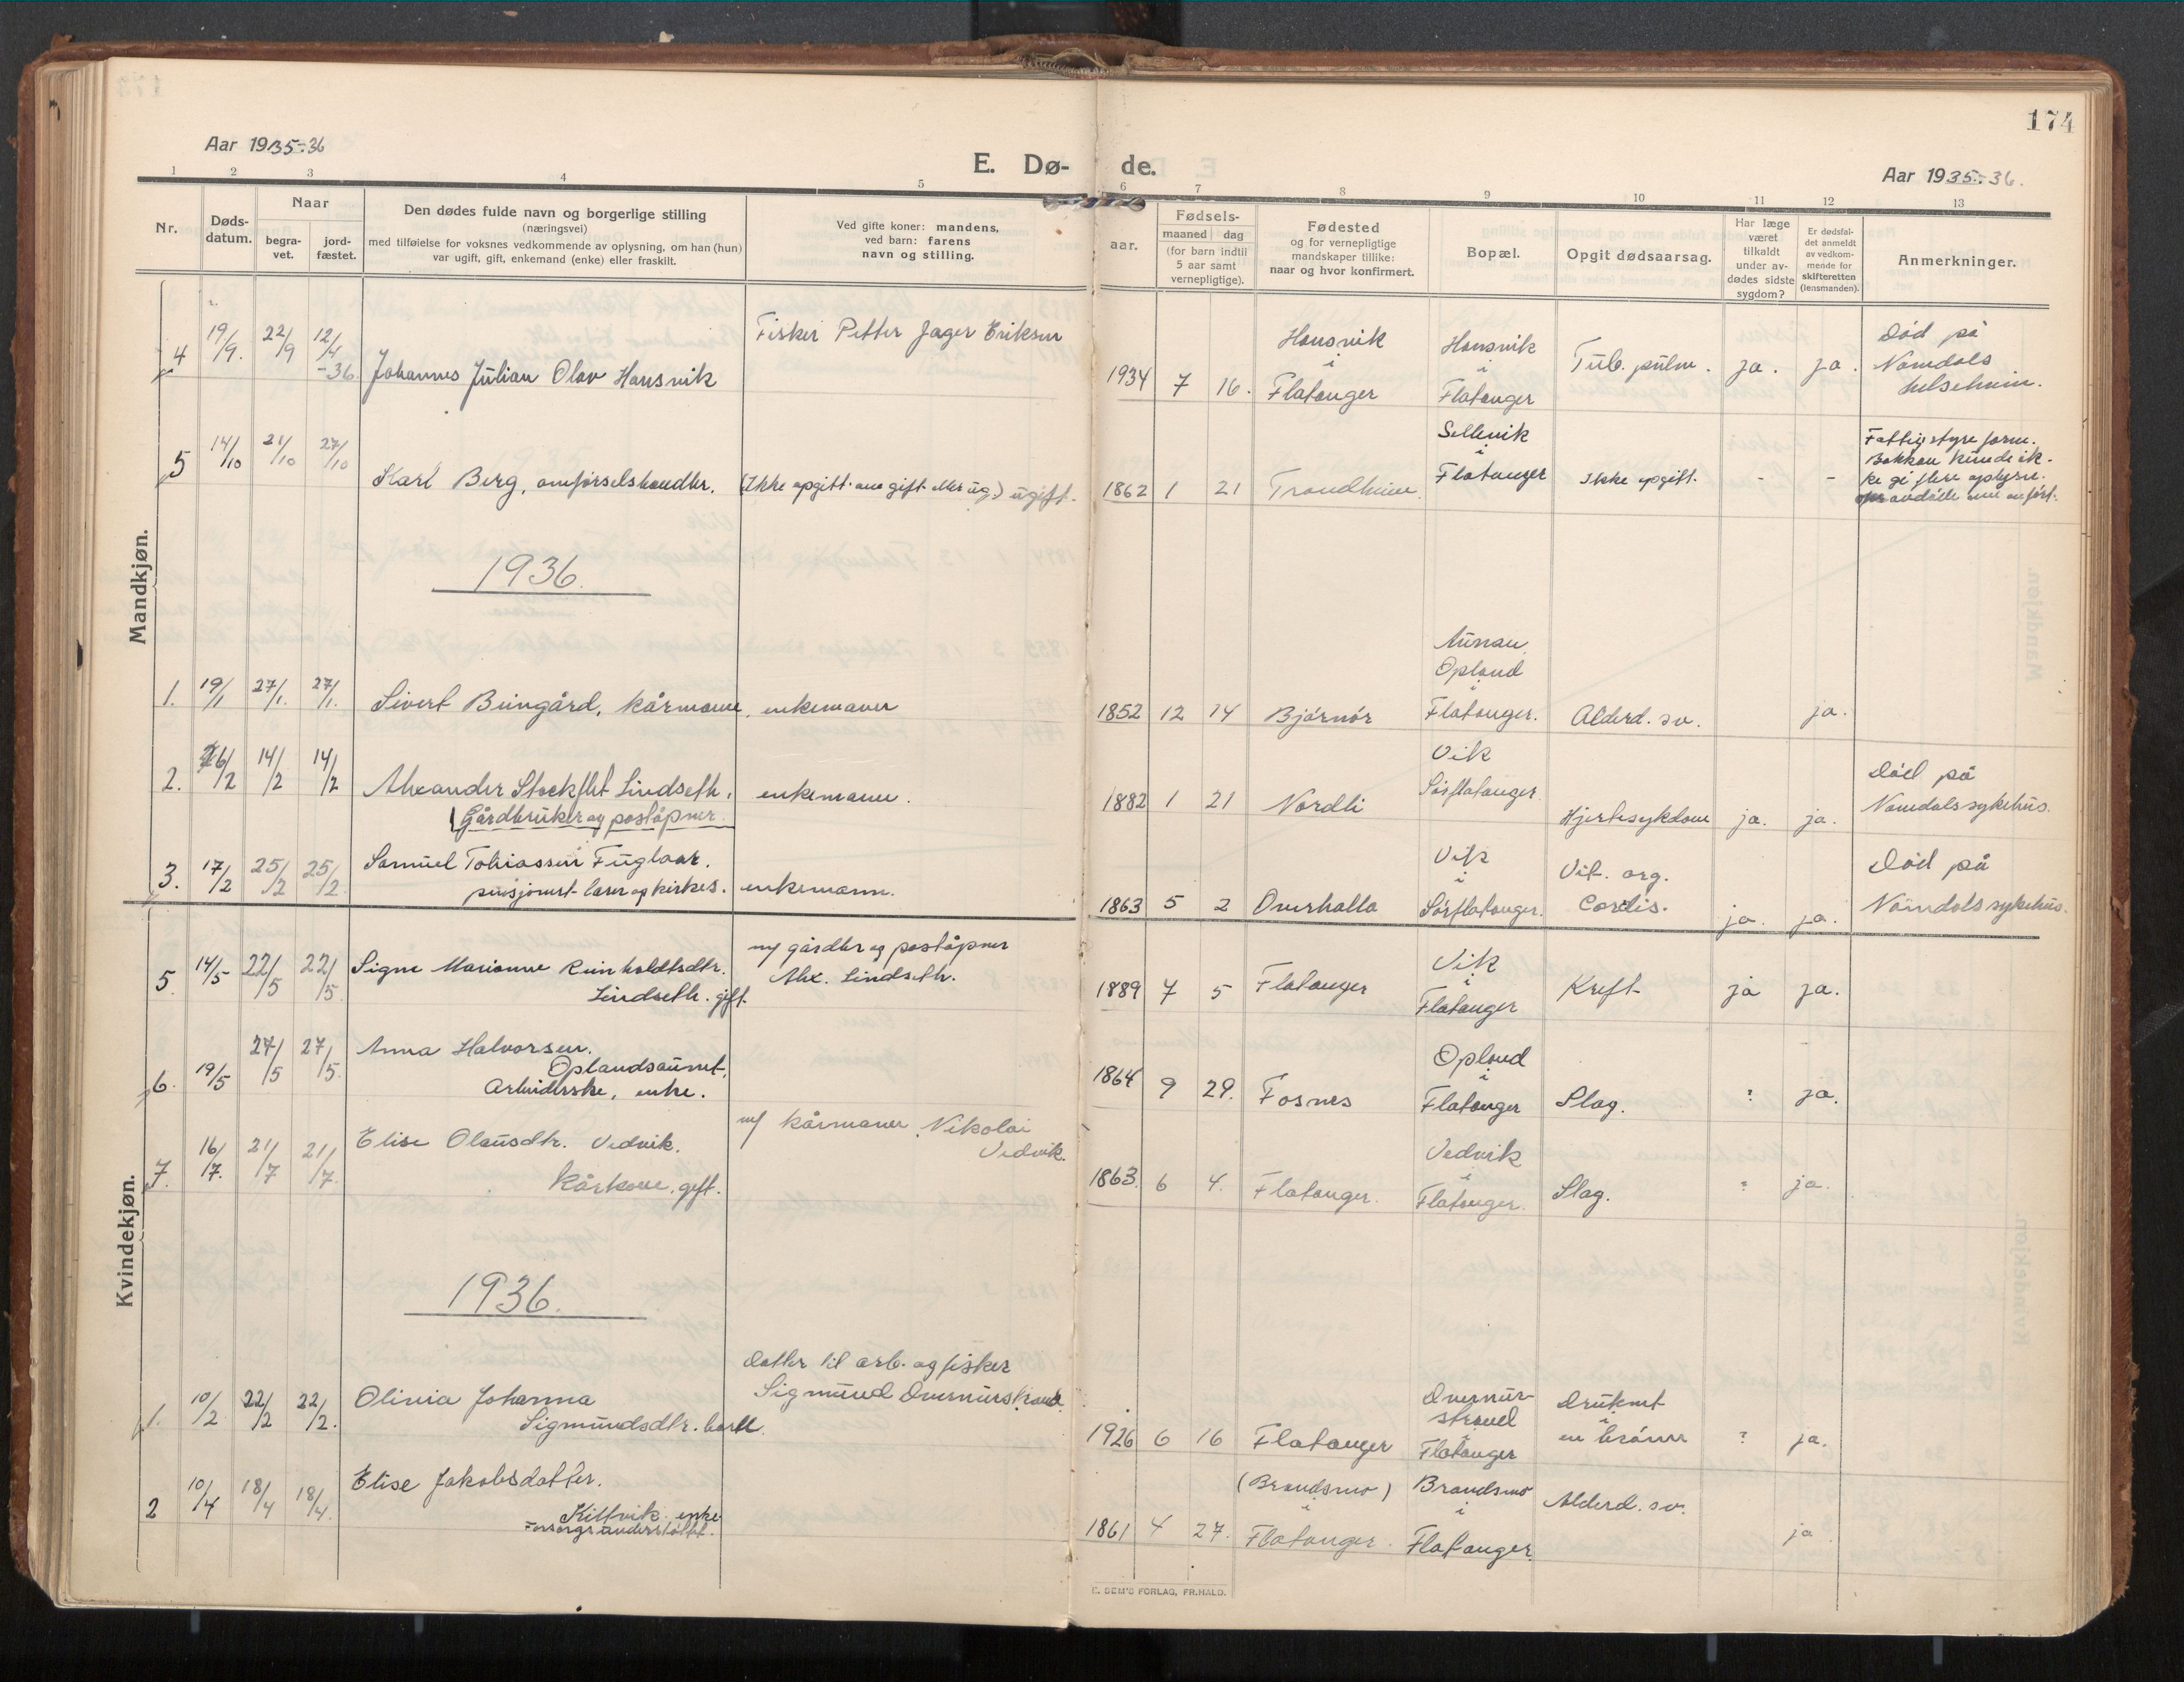 174
Aar 1935-36
E. Dø-
de.
Aar 1935-36.
1 2 3 4 5 6 7 8 9 10 11 12 13
Nr.
Døds-
datum.
Naar
begra-
vet.
jord-
fæstet.
Den dødes fulde navn og borgerlige stilling
(næringsvei)
med tilføielse for voksnes vedkommende av oplysning, om han (hun)
var ugift, gift, enkemand (enke) eller fraskilt.
Ved gifte koner: mandens,
ved barn: farens
navn og stilling.
Fødsels-
aar.
maaned dag
(for barn indtil
5 aar samt
vernepligtige).
Fødested
og for vernepligtige
mandskaper tillike:
naar og hvor konfirmert.
Bopæl.
Opgit dødsaarsag.
Har læge
været
tilkaldt
under av-
dødes sidste
sygdom?
Er dødsfal-
det anmeldt
av vedkom-
mende for
skifteretten
(lensmanden).
Anmerkninger.
Mandkjøn.
4 19/9. 22/9 12/4 -36 Johannes Julian Olav Hansvik
Fisker Petter Jager Eriksen
1934 7 16. Hansvik i Flatanger
Hansvik i Flatanger
Tub. pulm. ja. ja.
Död på
Namdals
helseheim.
5 14/10 21/10 27/10 Karl Berg, omførselshandler. (Ikke opgitt om gift eller ug.) ugift.
1862 1 21 Trondheim.
Sellevik
i
Flatanger Ikke opgitt. - -
Fattigstyreform.
Bakken kunde ik-
ke gi flere oplysn.
om avdöde enn anført.
1936.
1. 19/1 27/1. 27/1. Sivert Bungård, kårmann, enkemann
1852 12 14 Bjørnör
Aunan,
Opland
i
Flatanger. Alderd. sv. ja.
2. 6/2 14/2 14/2 Alexander Stockflet Lindseth, enkemann.
Gårdbruker og poståpner.
1882 1 21 Nordli
Vik
Sörflatanger.
Hjertesykdom ja. ja.
Död på
Namdalssykehus.
3. 17/2 25/2 25/2 Samuel Tobiassen Fuglaar.
pensjonert lærer og kirkes. enkemann.
1863 5 2 Overhalla
Vik
i
Sörflatanger.
Vit. org.
Cordis. ja. ja.
Död på
Namdals sykehus.
Kvindekjøn.
5. 14/5 22/5 22/5 Signe Marianne Reinholdtsdtr.
Lindseth. gift.
m/ gårdbr og poståpner
Alex. Lindseth.
1889 7 5 Flatanger
Vik
i
Flatanger Kreft ja ja.
6. 19/5 27/5 27/5. Anna Halvorsen.
Oplandsaunet,
Arbeiderske, enke.
1864 9 29. Fosnes
Opland
i
Flatanger Slag. ? ja.
7. 16/7. 21/7 21/7. Elise Olausdtr. Vedvik.
Kårkone, gift.
m/ kårmann Nikolai
Vedvik.
1863. 6 4. Flatanger.
Vedvik
i
Flatanger. Slag. ? ja.
1936.
1. 10/2. 22/2 22/2. Olivia Johanna
Sigmundsdtr. barn.
Datter til arb. og fisker
Sigmund Dvernurstrand.
1926 6 16 Flatanger
Dvernur-
strand
i
Flatanger
Druknet
i
en brönn ? ja.
2 10/4 18/4 18/4. Elise Jakobsdatter.
Kittvik. enke
Forsorgsunderstøttet.
1861 4 27. (Brandsmo)
i
Flatanger.
Brandsmo
i
Flatanger.
Alderd. sv. ja
E. SEM'S FORLAG, FR.HALD.